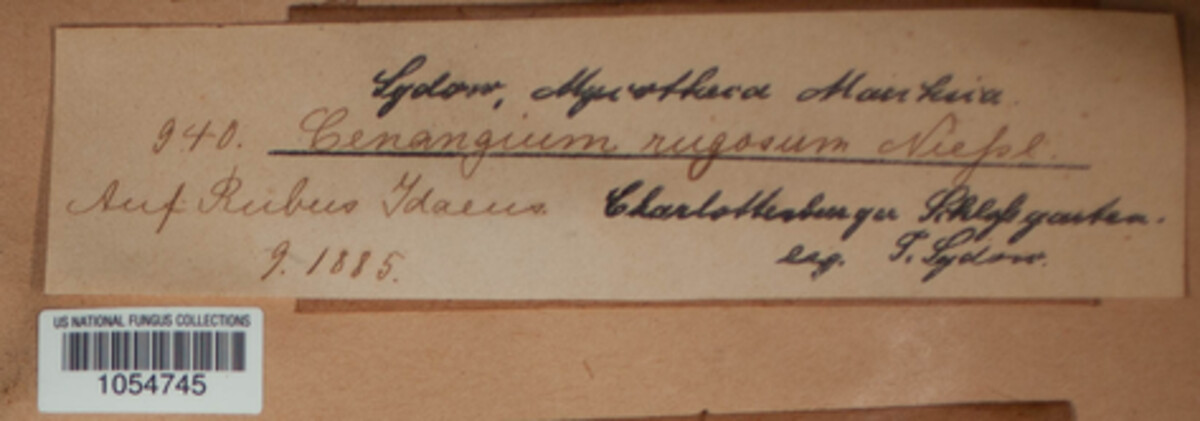 Sydow, Mycotheca Marchica.
940. Cenangium rugosum Nießl.
Auf Rubus Idaeus Charlottenburger Schloßgarten.
9. 1885. leg. P. Sydow.
US NATIONAL FUNGUS COLLECTIONS
1054745